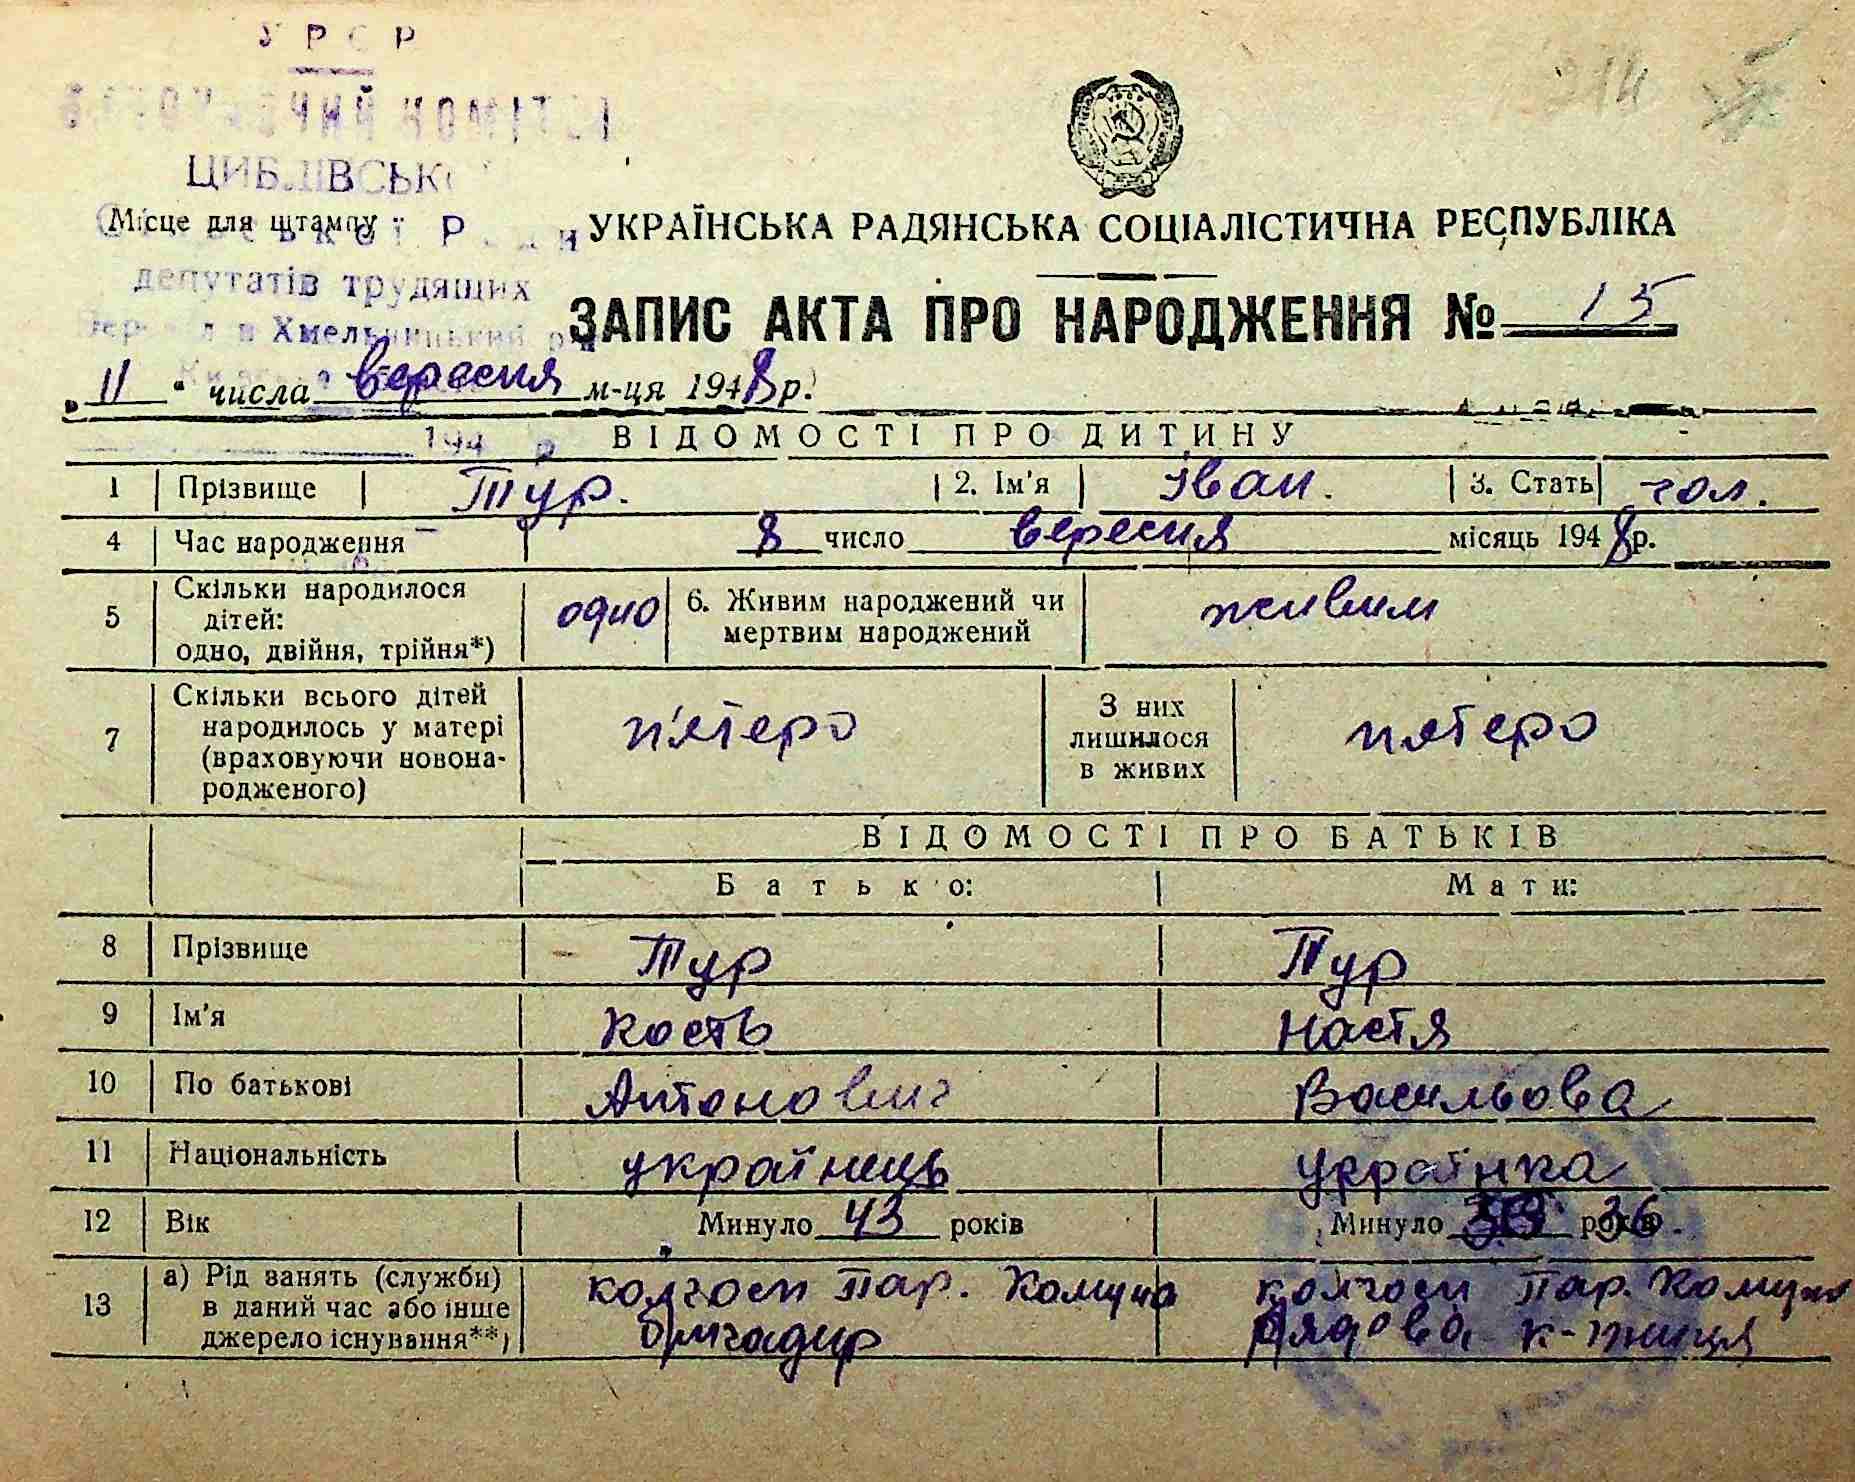 УРСР
ВИКОНАВЧИЙ КОМІТЕТ
ЦИБЛІВСЬКО
Місце для штампу
Сільської Ради
депутатів трудящих
Хмельницький
УКРАЇНСЬКА РАДЯНСЬКА СОЦІАЛІСТИЧНА РЕСПУБЛІКА
ЗАПИС АКТА ПРО НАРОДЖЕННЯ № 15
„ 11 " числа вересня м-ця 1948 р.
194 р
ВІДОМОСТІ ПРО ДИТИНУ
1 Прізвище Тур. 2. Ім'я Іван. 3. Стать чол.
4 Час народження 8 число вересня місяць 1948 р.
5 Скільки народилося дітей: одно, двійня, трійня*) одно 6. Живим народжений чи мертвим народжений живим
7 Скільки всього дітей народилось у матері (враховуючи новонародженого) п'ятеро З них лишилося в живих пятеро
ВІДОМОСТІ ПРО БАТЬКІВ
Батько: Мати:
8 Прізвище Тур Тур
9 Ім'я Кость Настя
10 По батькові Антонович Васильова
11 Національність українець українка
12 Вік Минуло 43 років Минуло років 36
13 а) Рід занять (служби) в даний час або інше джерело існування**) колгосп Пар. Комуна бригадир колгосп Пар. Комуна рядова к-жниця